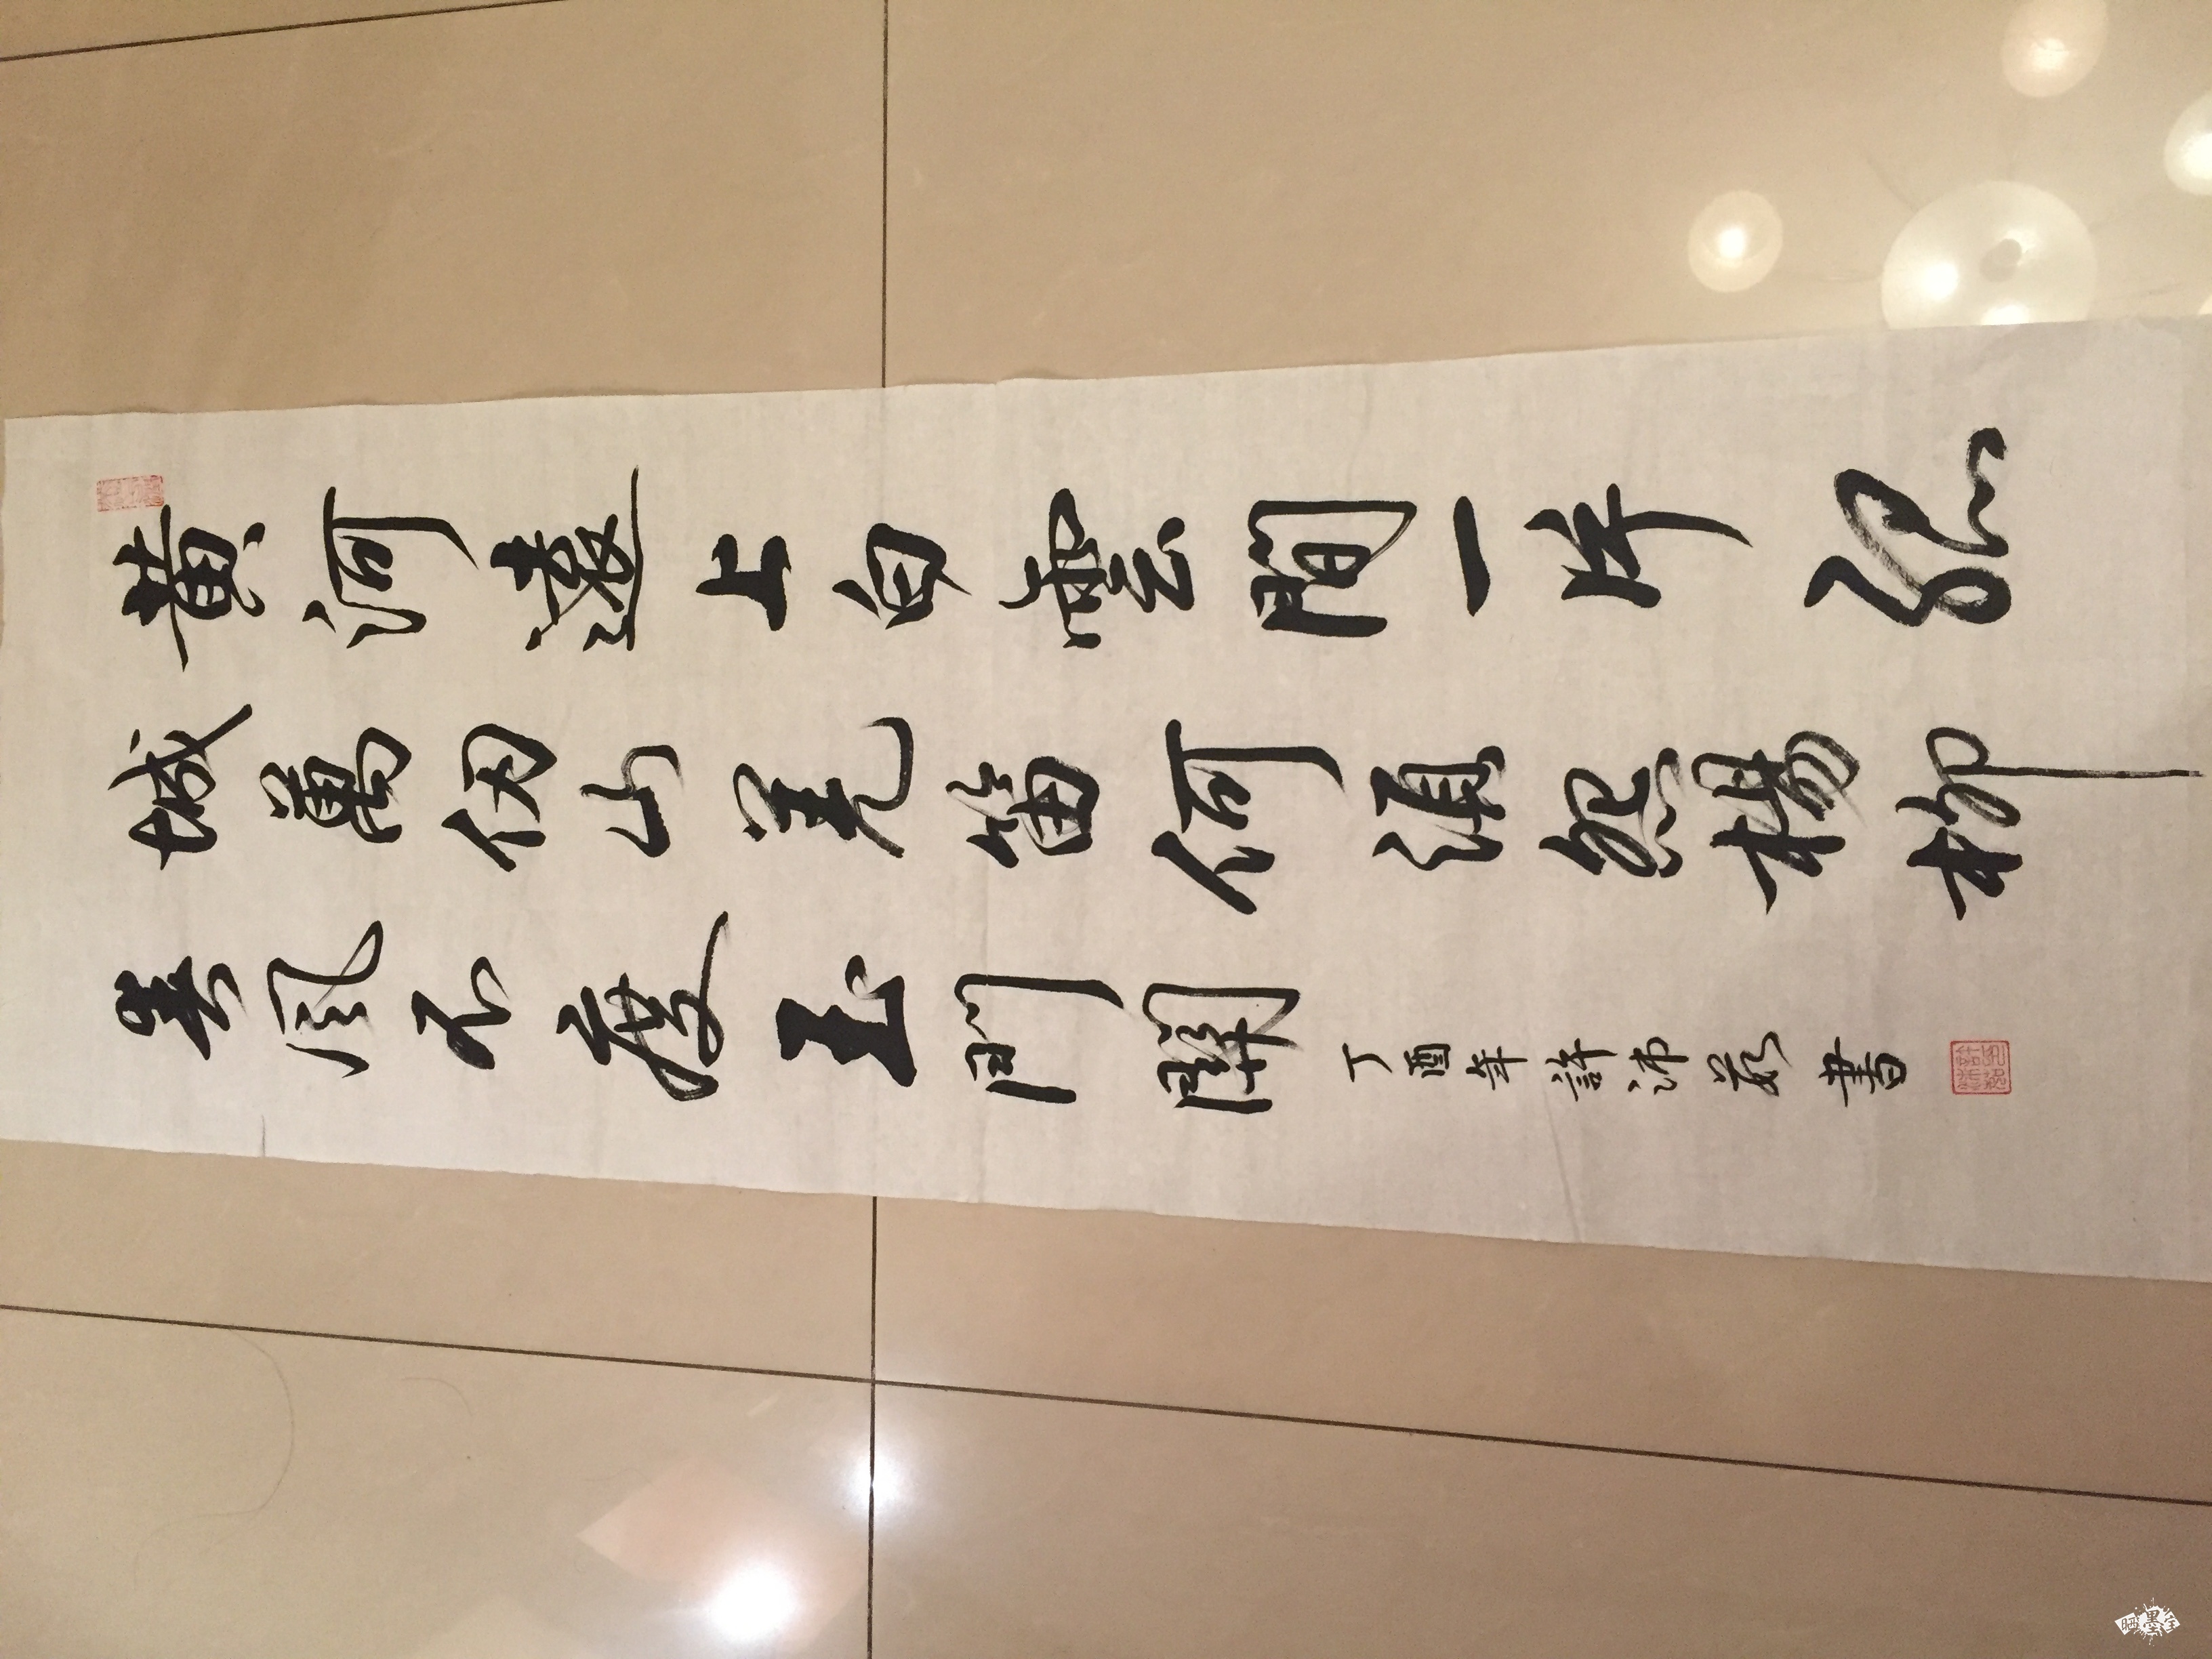 黄河遠上白雲間一片孤
城萬仞山羌笛何須怨楊柳
春風不度玉門關
丁酉年許沛書